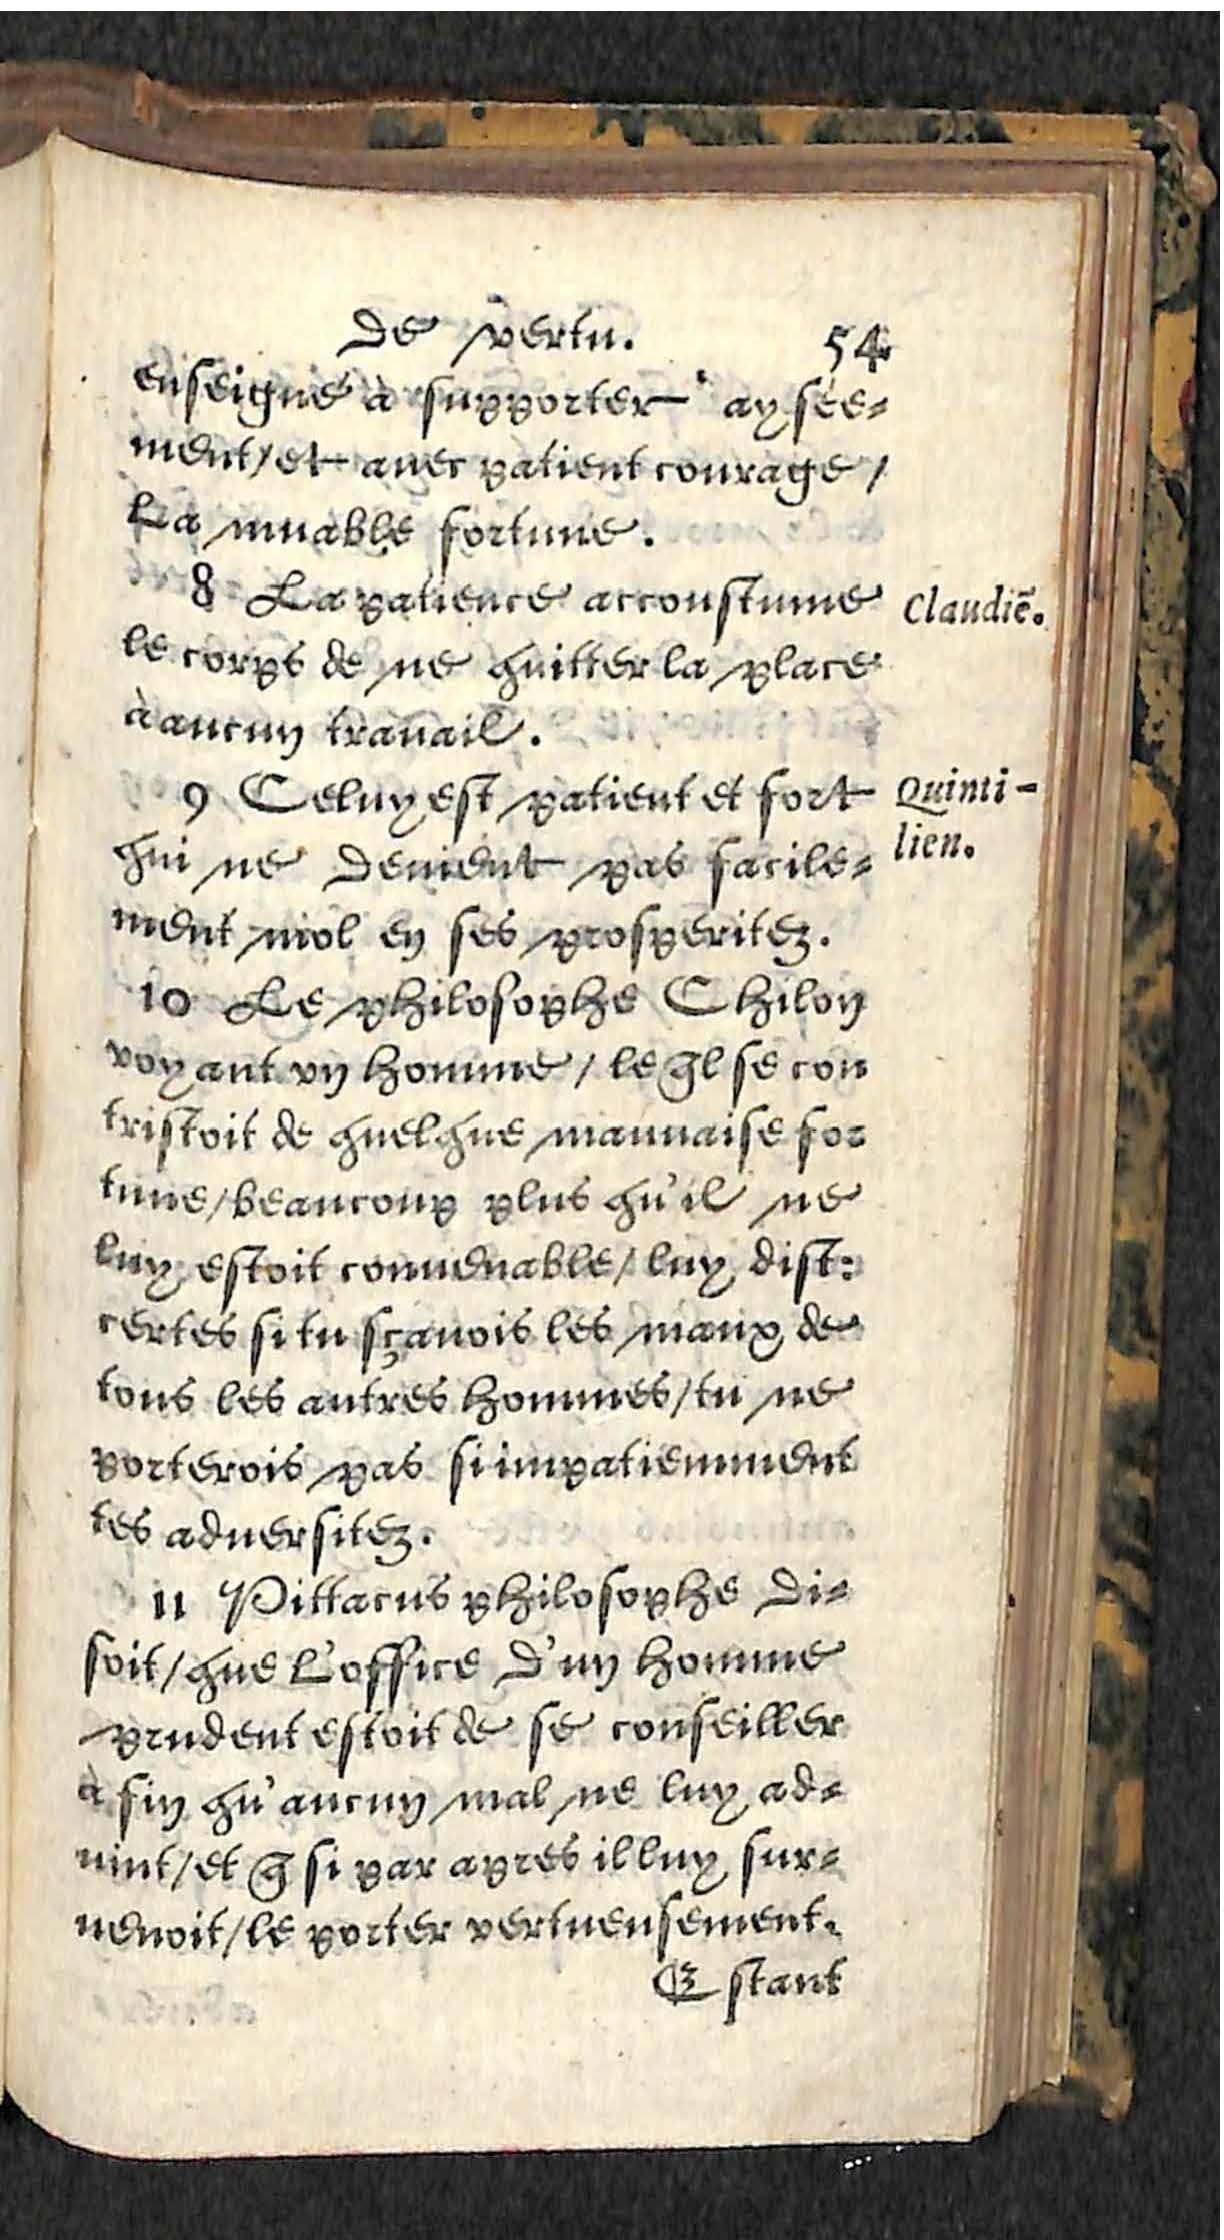 De vertu. 54
enseigne à supporter aysée=
ment/et auec patient courage/
La muable fortune.
8 La patience accoustume
le corps de ne quitter la place
à aucun trauail.
Claudiē.
9 Celuy est patient et fort
qui ne deuient pas facile=
ment mol en ses prosperitez.
Quinti-
lien.
10 Le philosophe Chilon
voyant vn homme/ le q̃l se con
tristoit de quelque mauuaise for
tune/beaucoup plus qu'il ne
luy estoit conuenable/ luy dist:
certes si tu sçauois les maux de
tous les autres hommes/tu ne
porterois pas si impatiemment
tes aduersitez.
11 Pittacus philosophe di=
soit/que L'office d'un homme
prudent estoit de se conseiller
à fin qu'aucun mal ne luy ad=
uint/et q̃ si par apres il luy sur=
uenoit/le porter vertueusement.
Estant